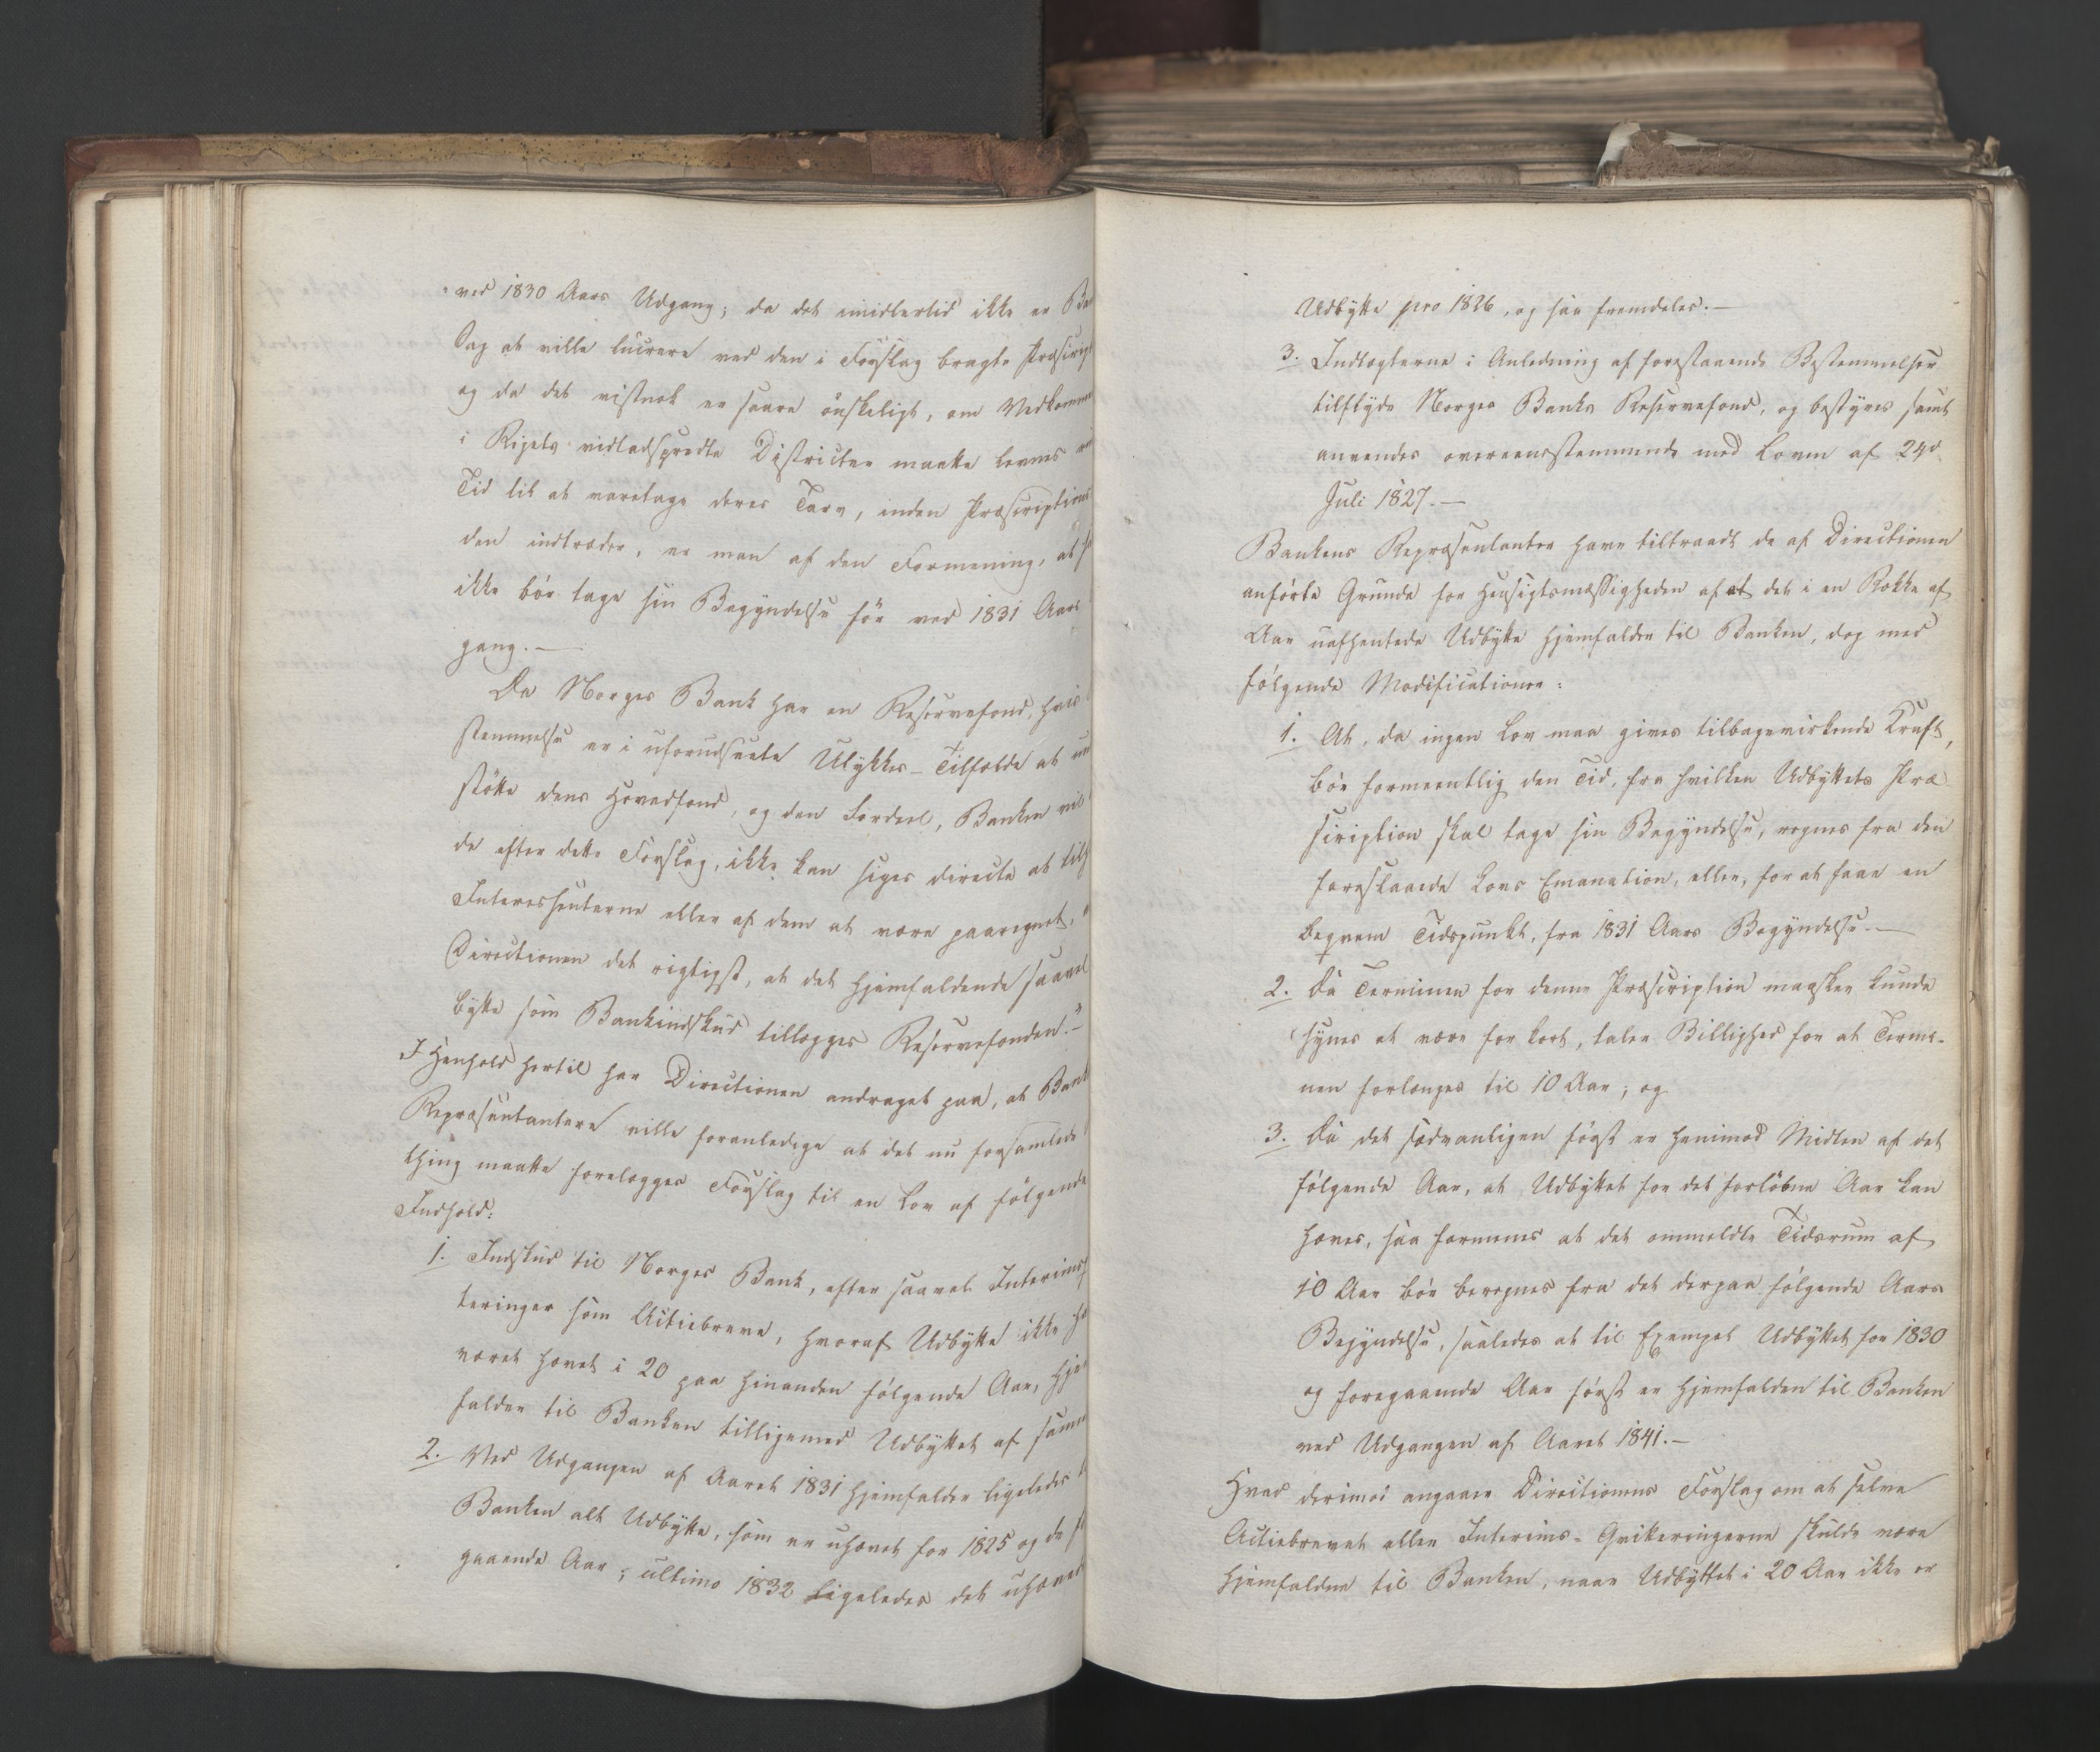 ved 1830 Aars Udgang; da det imidlertid ikke er Ba
Sag at ville lucrere ved den i Forslag bragte Præscript
og da det vistnok er saare önskeligt, om Vedkomme
i Rigets vidtadspredte Districter maatte levnes
Tid til at varetage deres Tarv, inden Præscriptions
den indtræder, er man af den Formening, at
ikke bör tage sin Begyndelse för ved 1831 Aars
gang. —
Da Norges Bank har en Reservefond, hvis
stemmelse er i uforudseete Ulykkes-Tilfælde at un
stötte dens Hovedfond, og den Fordeel, Banken vil
de efter dette Forslag, ikke kan siges directe at tilh
Interessenterne eller af dem at være paaregnet,
Directionen det rigtigst, at det hjemfaldende saavel
bytte som Bankindskud tillægges Reservefonden." —
I Henhold hertil har Directionen andraget paa, at Bank
Repræsentantere ville foranledige at det nu forsamlede
thing maatte forelægges Forslag til en Lov af fölgende
Indhold:
1. Indskud til Norges Bank, efter saavel Interims
teringer som Actiebreve, hvoraf Udbytte ikke ha
været hævet i 20 paa hinanden fölgende Aar, hje
falder til Banken tilligemed Udbyttet af samm
2. Ved Udgangen af Aaret 1831 hjemfalder ligeledes
Banken alt Udbytte, som er uhævet for 1825 og de
gaaende Aar; ultimo 1832 ligeledes det uhævet
Udbytte pro 1826, og saa fremdeles. —
3. Indtægterne i Anledning af forestaaende Bestemmelser
tilflyde Norges Banks Reservefond, og bestyres samt
anvendes overeensstemmende med Loven af 24d
Juli 1827. —
Bankens Repræsentanter have tiltraadt de af Directionen
anförte Grunde for Hensigtsmæssigheden af at det i en Række af
Aar uafhentede Udbytte hjemfalder til Banken, dog med
fölgende Modificationer:
1. At, da ingen Lov maa gives tilbagevirkende Kraft,
bör formeentlig den Tid, fra hvilken Udbyttets Præ
scription skal tage sin Begyndelse, regnes fra den
foreslaaede Lovs Emanation, eller, for at faae en
beqvem Tidspunkt, fra 1831 Aars Begyndelse. —
2. Da Terminen for denne Præscription maaskee kunde
synes at være for kort, taler Billighed for at Termi-
nen forlænges til 10 Aar; og
3. Da det sædvanligen först er henimod Midten af det
fölgende Aar, at Udbyttet for det forlöbne Aar kan
hæves, saa formenes at det ommeldte Tidsrum af
10 Aar bör beregnes fra det derpaa fölgende Aars
Begyndelse, saaledes at til Exempel Udbyttet for 1830
og foregaaende Aar först er hjemfalden til Banken
ved Udgangen af Aaret 1841. —
Hvad derimod angaaer Directionens Forslag om at selve
Actiebrevet eller Interims-Qvitteringerne skulde være
hjemfaldne til Banken, naar Udbyttet i 20 Aar ikke er